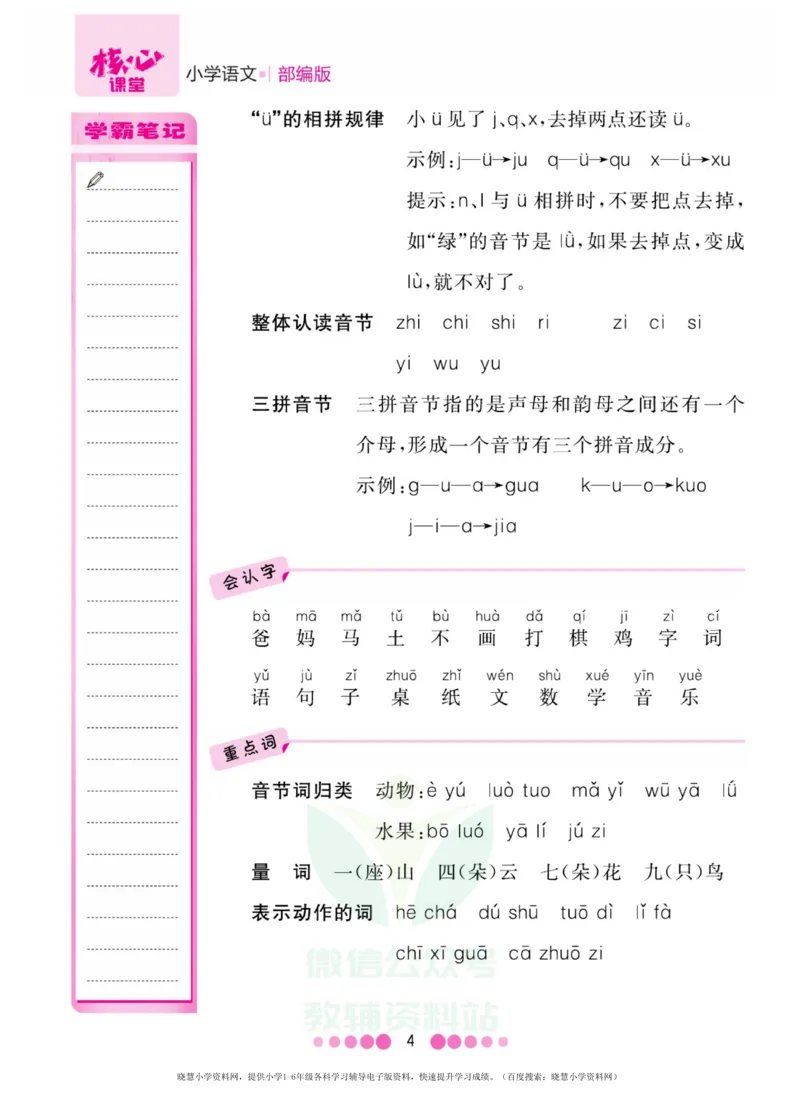 核心
课堂
小学语文 部编版
学霸笔记
“ü”的相拼规律 小 ü 见了 j、q、x,去掉两点还读 ü。
示例:j—ü→ju q—ü→qu x—ü→xu
提示:n、l 与 ü 相拼时,不要把点去掉,
如“绿”的音节是 lǜ,如果去掉点,变成
lù,就不对了。
整体认读音节 zhi chi shi ri zi ci si
yi wu yu
三拼音节 三拼音节指的是声母和韵母之间还有一个
介母,形成一个音节有三个拼音成分。
示例:g—u—a→gua k—u—o→kuo
j—i—a→jia
会认字
bà mā mǎ tǔ bù huà dǎ qí jī zì cí
爸 妈 马 土 不 画 打 棋 鸡 字 词
yǔ jù zǐ zhuō zhǐ wén shù xué yīn yuè
语 句 子 桌 纸 文 数 学 音 乐
重点词
音节词归类 动物:è yú luò tuo mǎ yǐ wū yā lǘ
水果:bō luó yā lí jú zi
量 词 一(座)山 四(朵)云 七(朵)花 九(只)鸟
表示动作的词 hē chá dú shū tuō dì lǐ fà
chī xī guā cā zhuō zi
微信公众号
教辅资料站
4
晓慧小学资料网，提供小学1-6年级各科学习辅导电子版资料，快速提升学习成绩。（百度搜索：晓慧小学资料网）